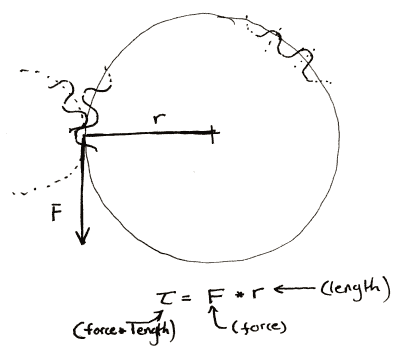 r
F
τ = F * r ← (length)
(force * length)
(force)